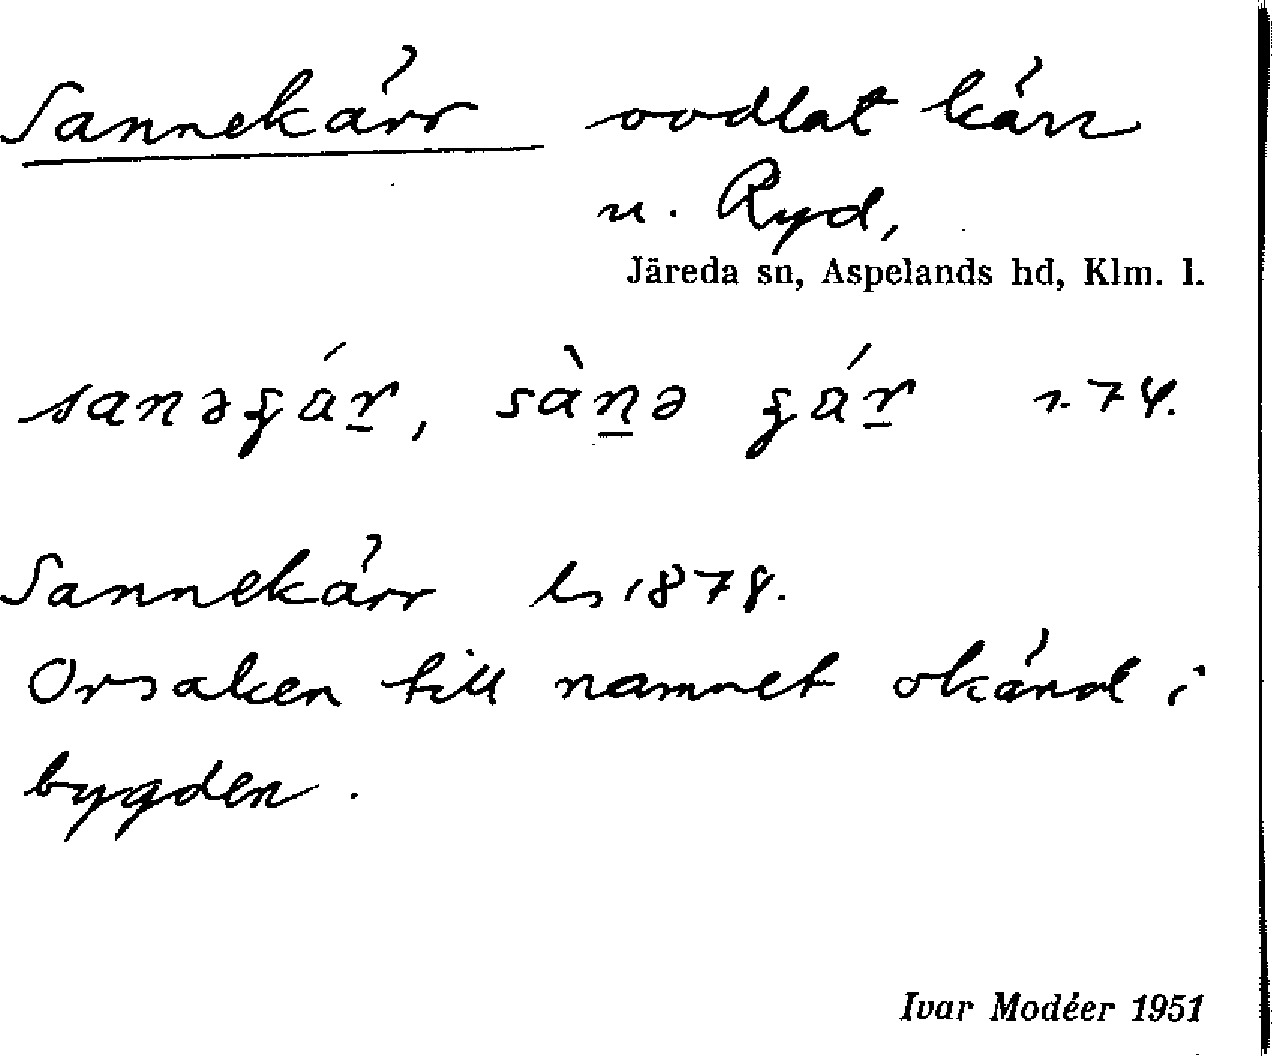 Sannekärr oodlat kärr
u. Ryd,
Järeda sn, Aspelands hd, Klm. l.
sanəgár, sànə gár r. 74.
Sannekärr ls 1878.
Orsaken till namnet okänd i
bygden.
Ivar Modéer 1951